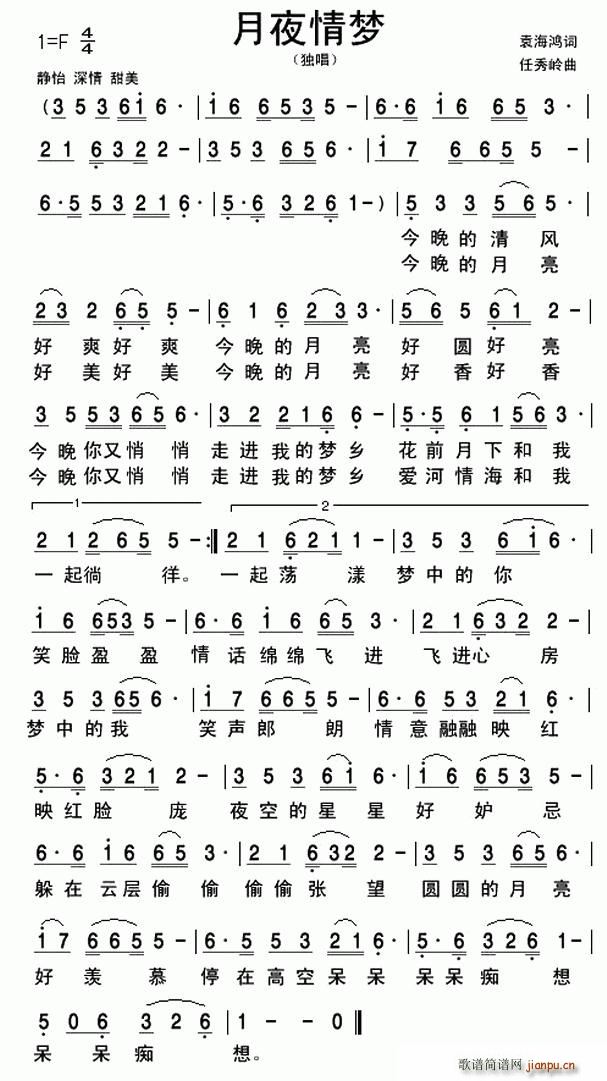 月夜情梦
1=F 4/4
（独唱）
袁海鸿词
静怡 深情 甜美
任秀岭曲
(3 5 3 6i 6· | i6 6535 - | 6·6 i6 65 3· |
21 6322 - | 353 656· | i7 6 665 5 - |
6·5 53 21 6· | 5·6 321 1-) | 5 3 3 56 5· |
今晚的清风
今晚的月亮
23 2 65 5 - | 6 1 6 23 3· | 5 6 5 61 2 - |
好爽好爽 今晚的月亮 好圆好亮
好美好美 今晚的月亮 好香好香
35 53 65 6· | 32 216 6 - | 5·5 61 5 32 |
今晚你又悄悄 走进我的梦乡 花前月下和我
今晚你又悄悄 走进我的梦乡 爱河情海和我
1 2
21 265 5 - :‖ 21 621 1 - | 353 6i 6· |
一起徜 徉。 一起荡 漾 梦中的你
i6 6535 - | 6·6 i6 65 3· | 21 632 2 - |
笑脸盈盈 情话绵绵飞进 飞进心 房
353 656· | i7 665 5 - | 6·6 53 21 6· |
梦中的我 笑声郎 朗 情意融融映红
5·6 321 2 - | 353 6i 6· | i6 6535 - |
映红脸 庞 夜空的星星好妒 忌
6·6 i6 65 3· | 21 632 2 - | 353 656· |
躲在云层偷偷偷偷张 望 圆圆的月亮
i7 665 5 - | 6·5 53 21 6· | 5·6 321 1- |
好羡 慕 停在高空呆呆 呆呆痴 想
5 0 6 3 2 6 | 1 - 1 0 ‖
呆 呆痴 想。
歌谱简谱网
jianpu.cn